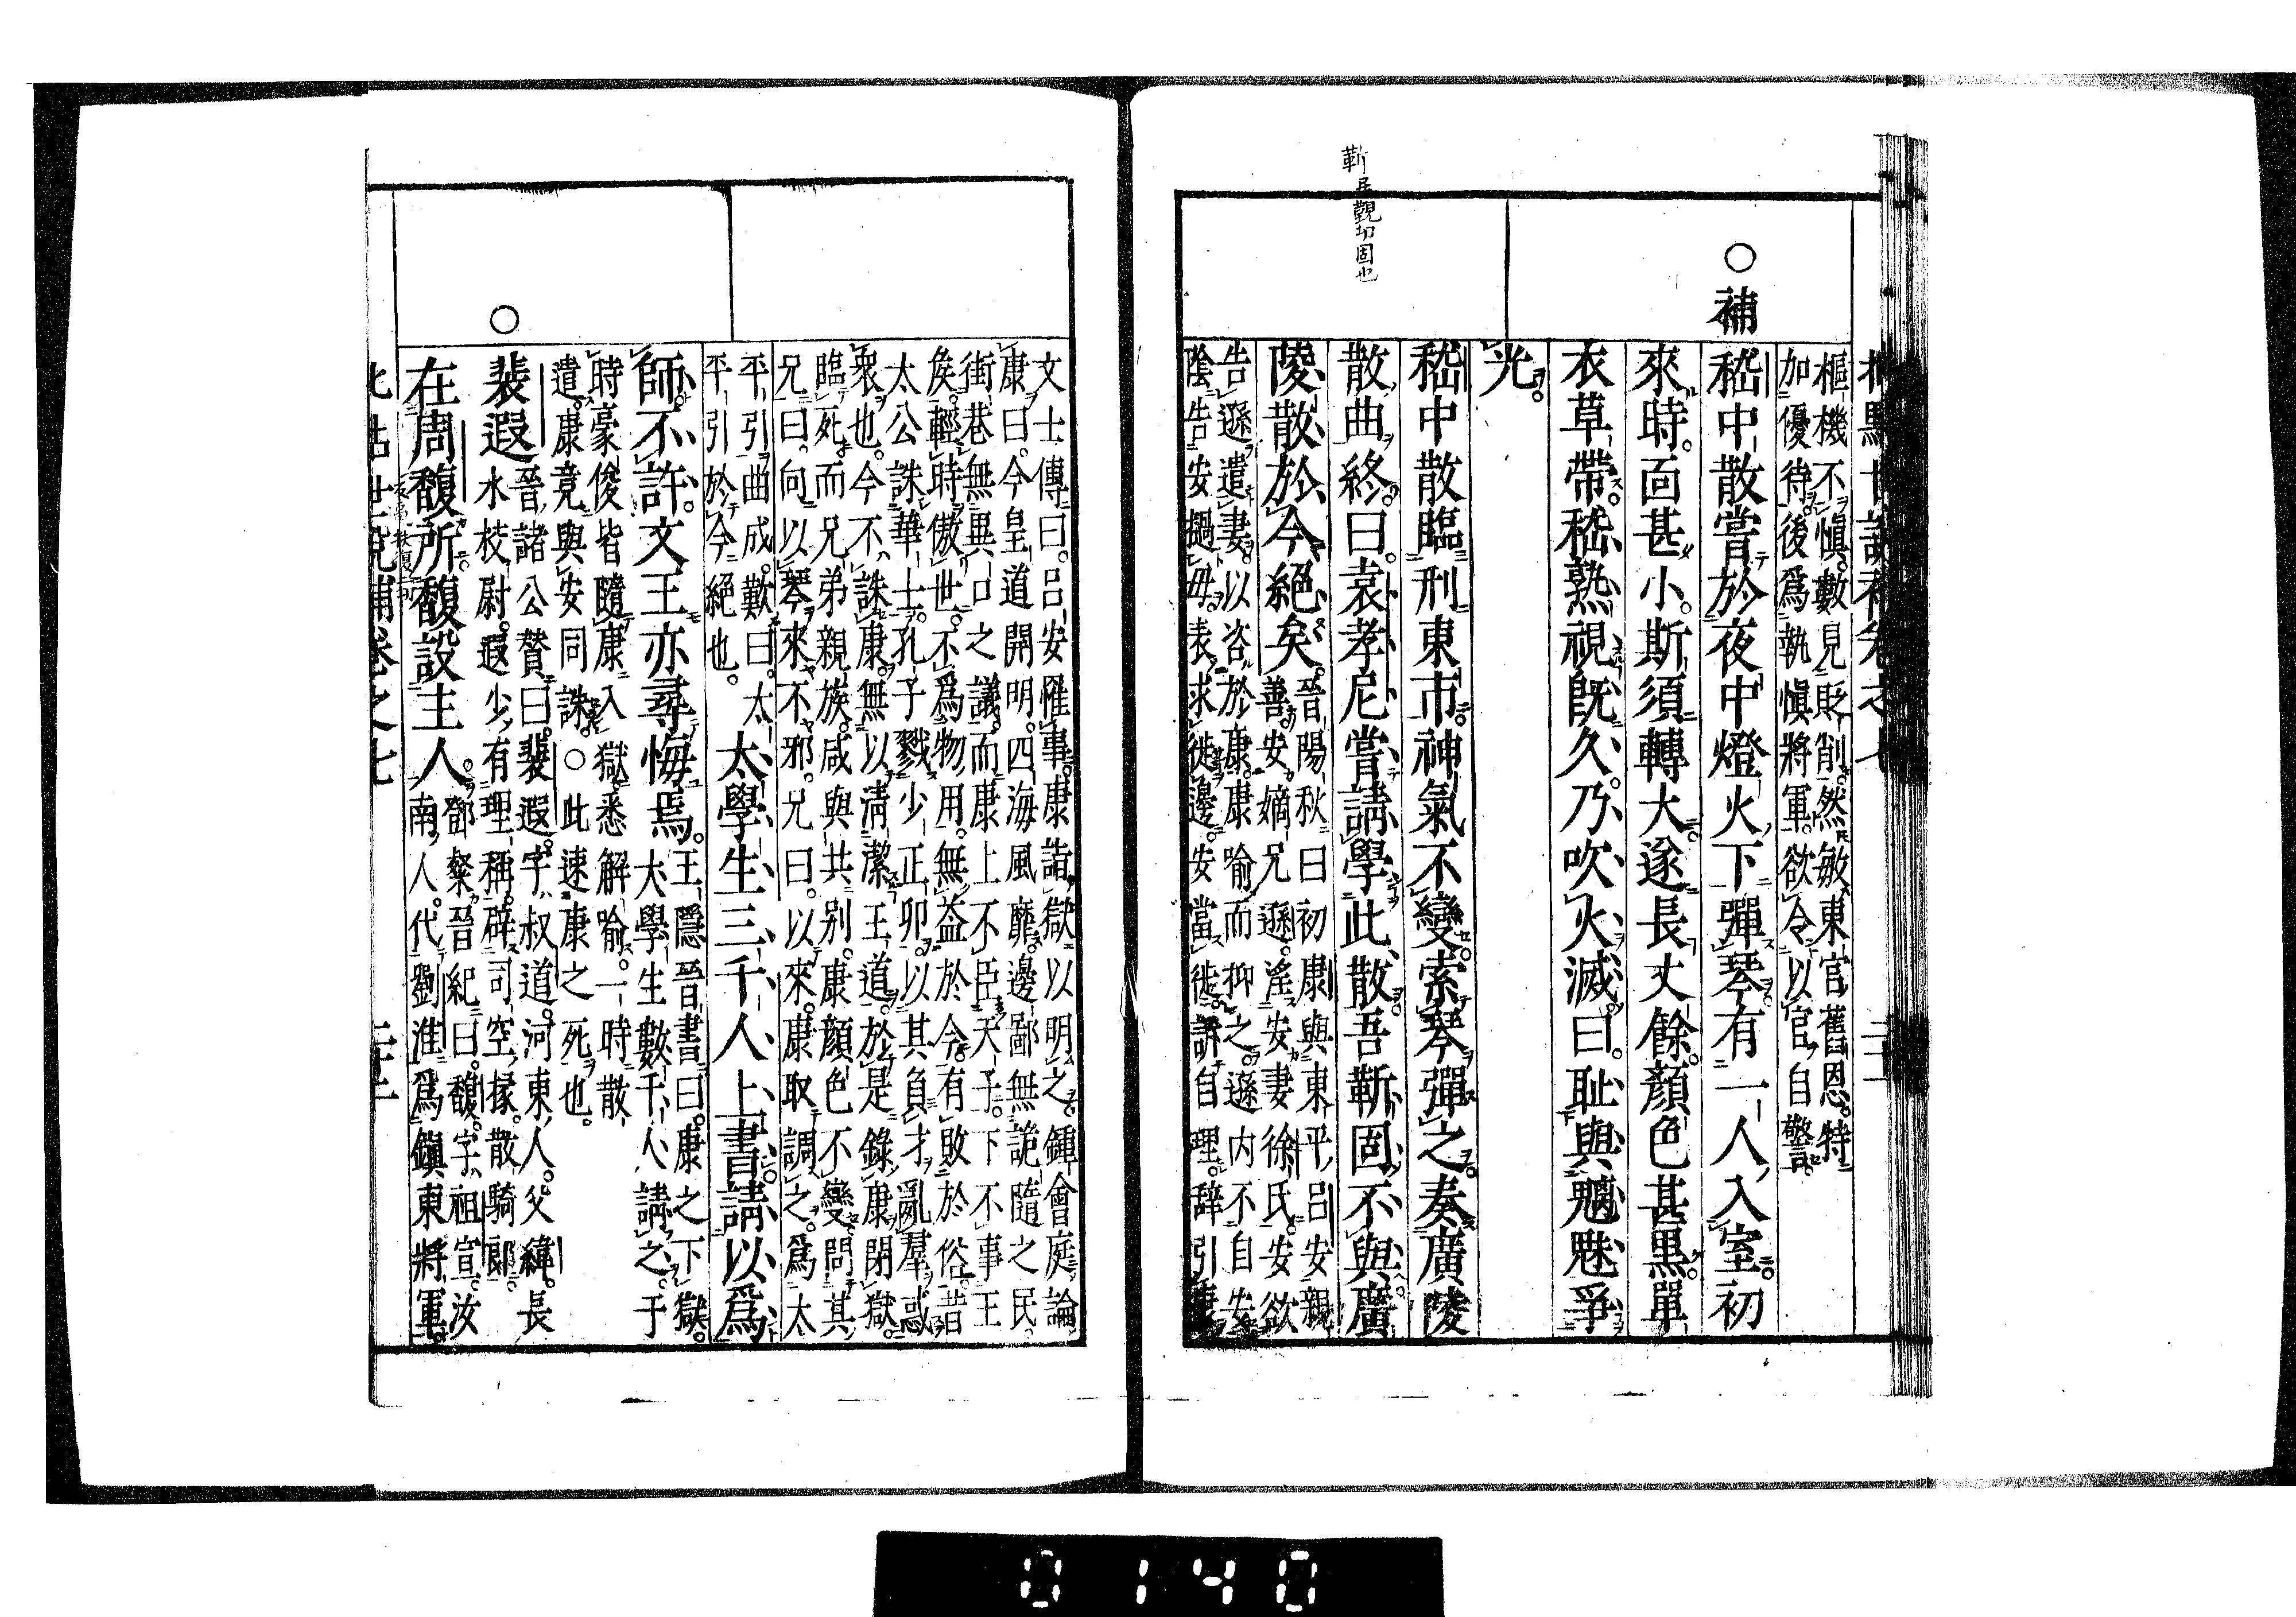 ○補
樞機不愼數見貶削然敏東官舊恩特
加優待後爲執愼將軍欲令以官自警
嵇中散嘗於夜中燈火下彈琴有一人入室初
來時面甚小斯須轉大遂長丈餘顏色甚黑單
衣草帶嵇熟視旣久乃吹火滅曰耻與魑魅爭
光
嵇中散臨刑東市神氣不變索琴彈之奏廣陵
散曲終曰袁孝尼嘗請學此散吾靳固不與廣
靳居觀切固也
陵散於今絕矣
晉陽秋曰初康與東平呂安親
善安嫡兄遜淫安妻徐氏安欲
告遜遣妻以咨於康康喻而抑之遜内不自安
陰告安撾母表求徙邊安當徙訴自理辭引
文士傳曰呂安罹事康詣獄以明之鍾會庭論
康曰今皇道開明四海風靡邊鄙無詭隨之民
街巷無異口之議而康上不臣天子下不事王
侯輕時傲世不爲物用無益於今有敗於俗昔
太公誅華士孔子戮少正卯以其負才亂羣惑
衆也今不誅康無以清潔王道於是錄康閉獄
臨死而兄弟親族咸與共别康顏色不變問其
兄曰向以琴來不邪兄曰以來康取調之爲太
平引曲成歎曰太
平引於今絕也
太學生三千人上書請以爲
師不許文王亦尋悔焉
王隱晉書曰康之下獄
太學生數千人請之于
時豪俊皆隨康入獄悉解喻一時散
遣康竟與安同誅○此速康之死也
○
裴遐
晉諸公賛曰裴遐字叔道河東人父緯長
水校尉遐少有理稱辟司空掾散騎郎
在周馥所馥設主人
鄧粲晉紀曰馥字祖宣汝
南人代劉淮爲鎭東將軍